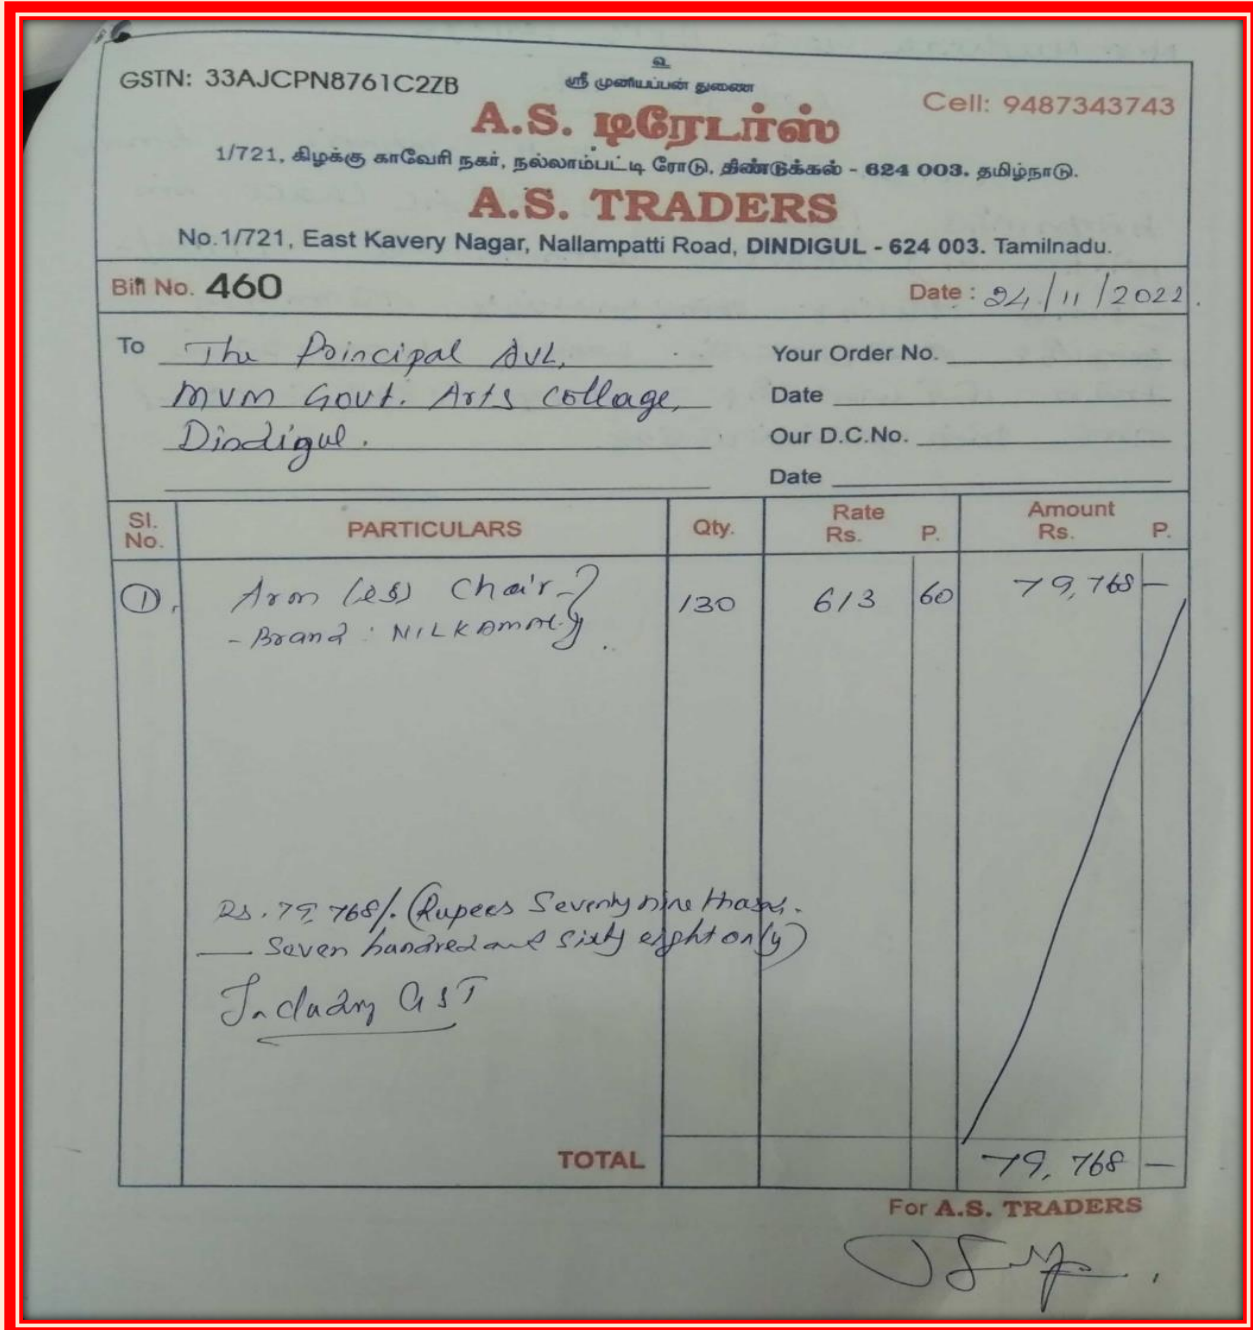 உ
GSTN: 33AJCPN8761C2ZB
ஸ்ரீ முனியப்பன் துணை
Cell: 9487343743
A.S. டிரேடர்ஸ்
1/721, கிழக்கு காவேரி நகர், நல்லாம்பட்டி ரோடு, திண்டுக்கல் - 624 003. தமிழ்நாடு.
A.S. TRADERS
No.1/721, East Kavery Nagar, Nallampatti Road, DINDIGUL - 624 003. Tamilnadu.
Bill No. 460 Date : 24/11/2022.
To The Principal Avl, Your Order No.
MVM Govt. Arts College, Date
Dindigul. Our D.C.No.
Date
Sl. No. PARTICULARS Qty. Rate Rs. P. Amount Rs. P.
1, Arm less Chair 130 613 60 79,768 —
- Brand : NILKAMAL.
Rs. 79,768/. (Rupees Seventy nine
Seven hundred and sixty eight only)
Including GST
TOTAL 79,768 —
For A.S. TRADERS